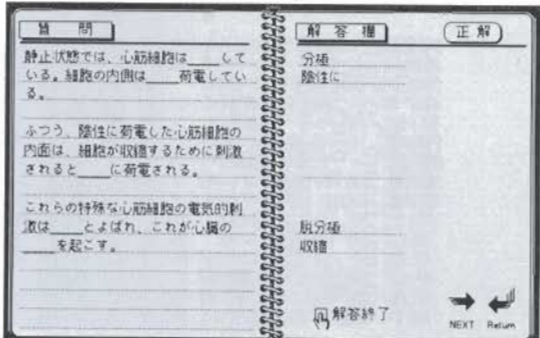 質問
静止状態では、心筋細胞は____して
いる。細胞の内側は____荷電してい
る。
ふつう、陰性に荷電した心筋細胞の
内面は、細胞が収縮するために刺激
されると____に荷電される。
これらの特殊な心筋細胞の電気的刺
激は____とよばれ、これが心臓の
____を起こす。
解答欄
正解
分極
陰性に
脱分極
収縮
解答終了
NEXT
Return